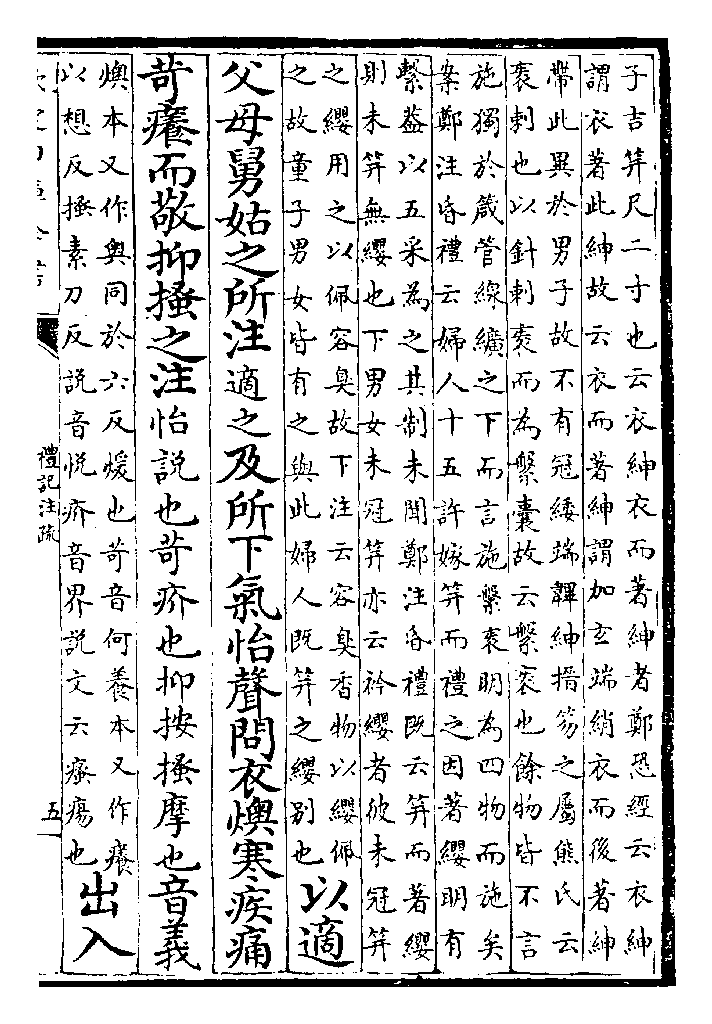 子吉笄尺二寸也云衣紳衣而著紳者鄭恐經云衣紳
謂衣著此紳故云衣而著紳謂加玄端綃衣而後著紳
帶此異於男子故不有冠緌端韠紳搢笏之屬熊氏云
袠刺也以針刺袠而為縏囊故云縏袠也餘物皆不言
施獨於箴管線纊之下而言施縏袠明為四物而施矣
案鄭注昏禮云婦人十五許嫁笄而禮之因著纓明有
繫蓋以五采為之其制未聞鄭注昏禮既云笄而著纓
則未笄無纓也下男女未冠笄亦云衿纓者彼未冠笄
之纓用之以佩容臭故下注云容臭香物以纓佩
之故童子男女皆有之與此婦人既笄之纓別也
以適
父母舅姑之所注適之及所下氣怡聲問衣燠寒疾痛
苛癢而敬抑搔之注怡說也苛疥也抑按搔摩也音義
燠本又作奥同於六反煖也苛音何養本又作癢
以想反搔素刀反說音悅疥音界說文云瘙瘍也
出入
禮記注疏
五